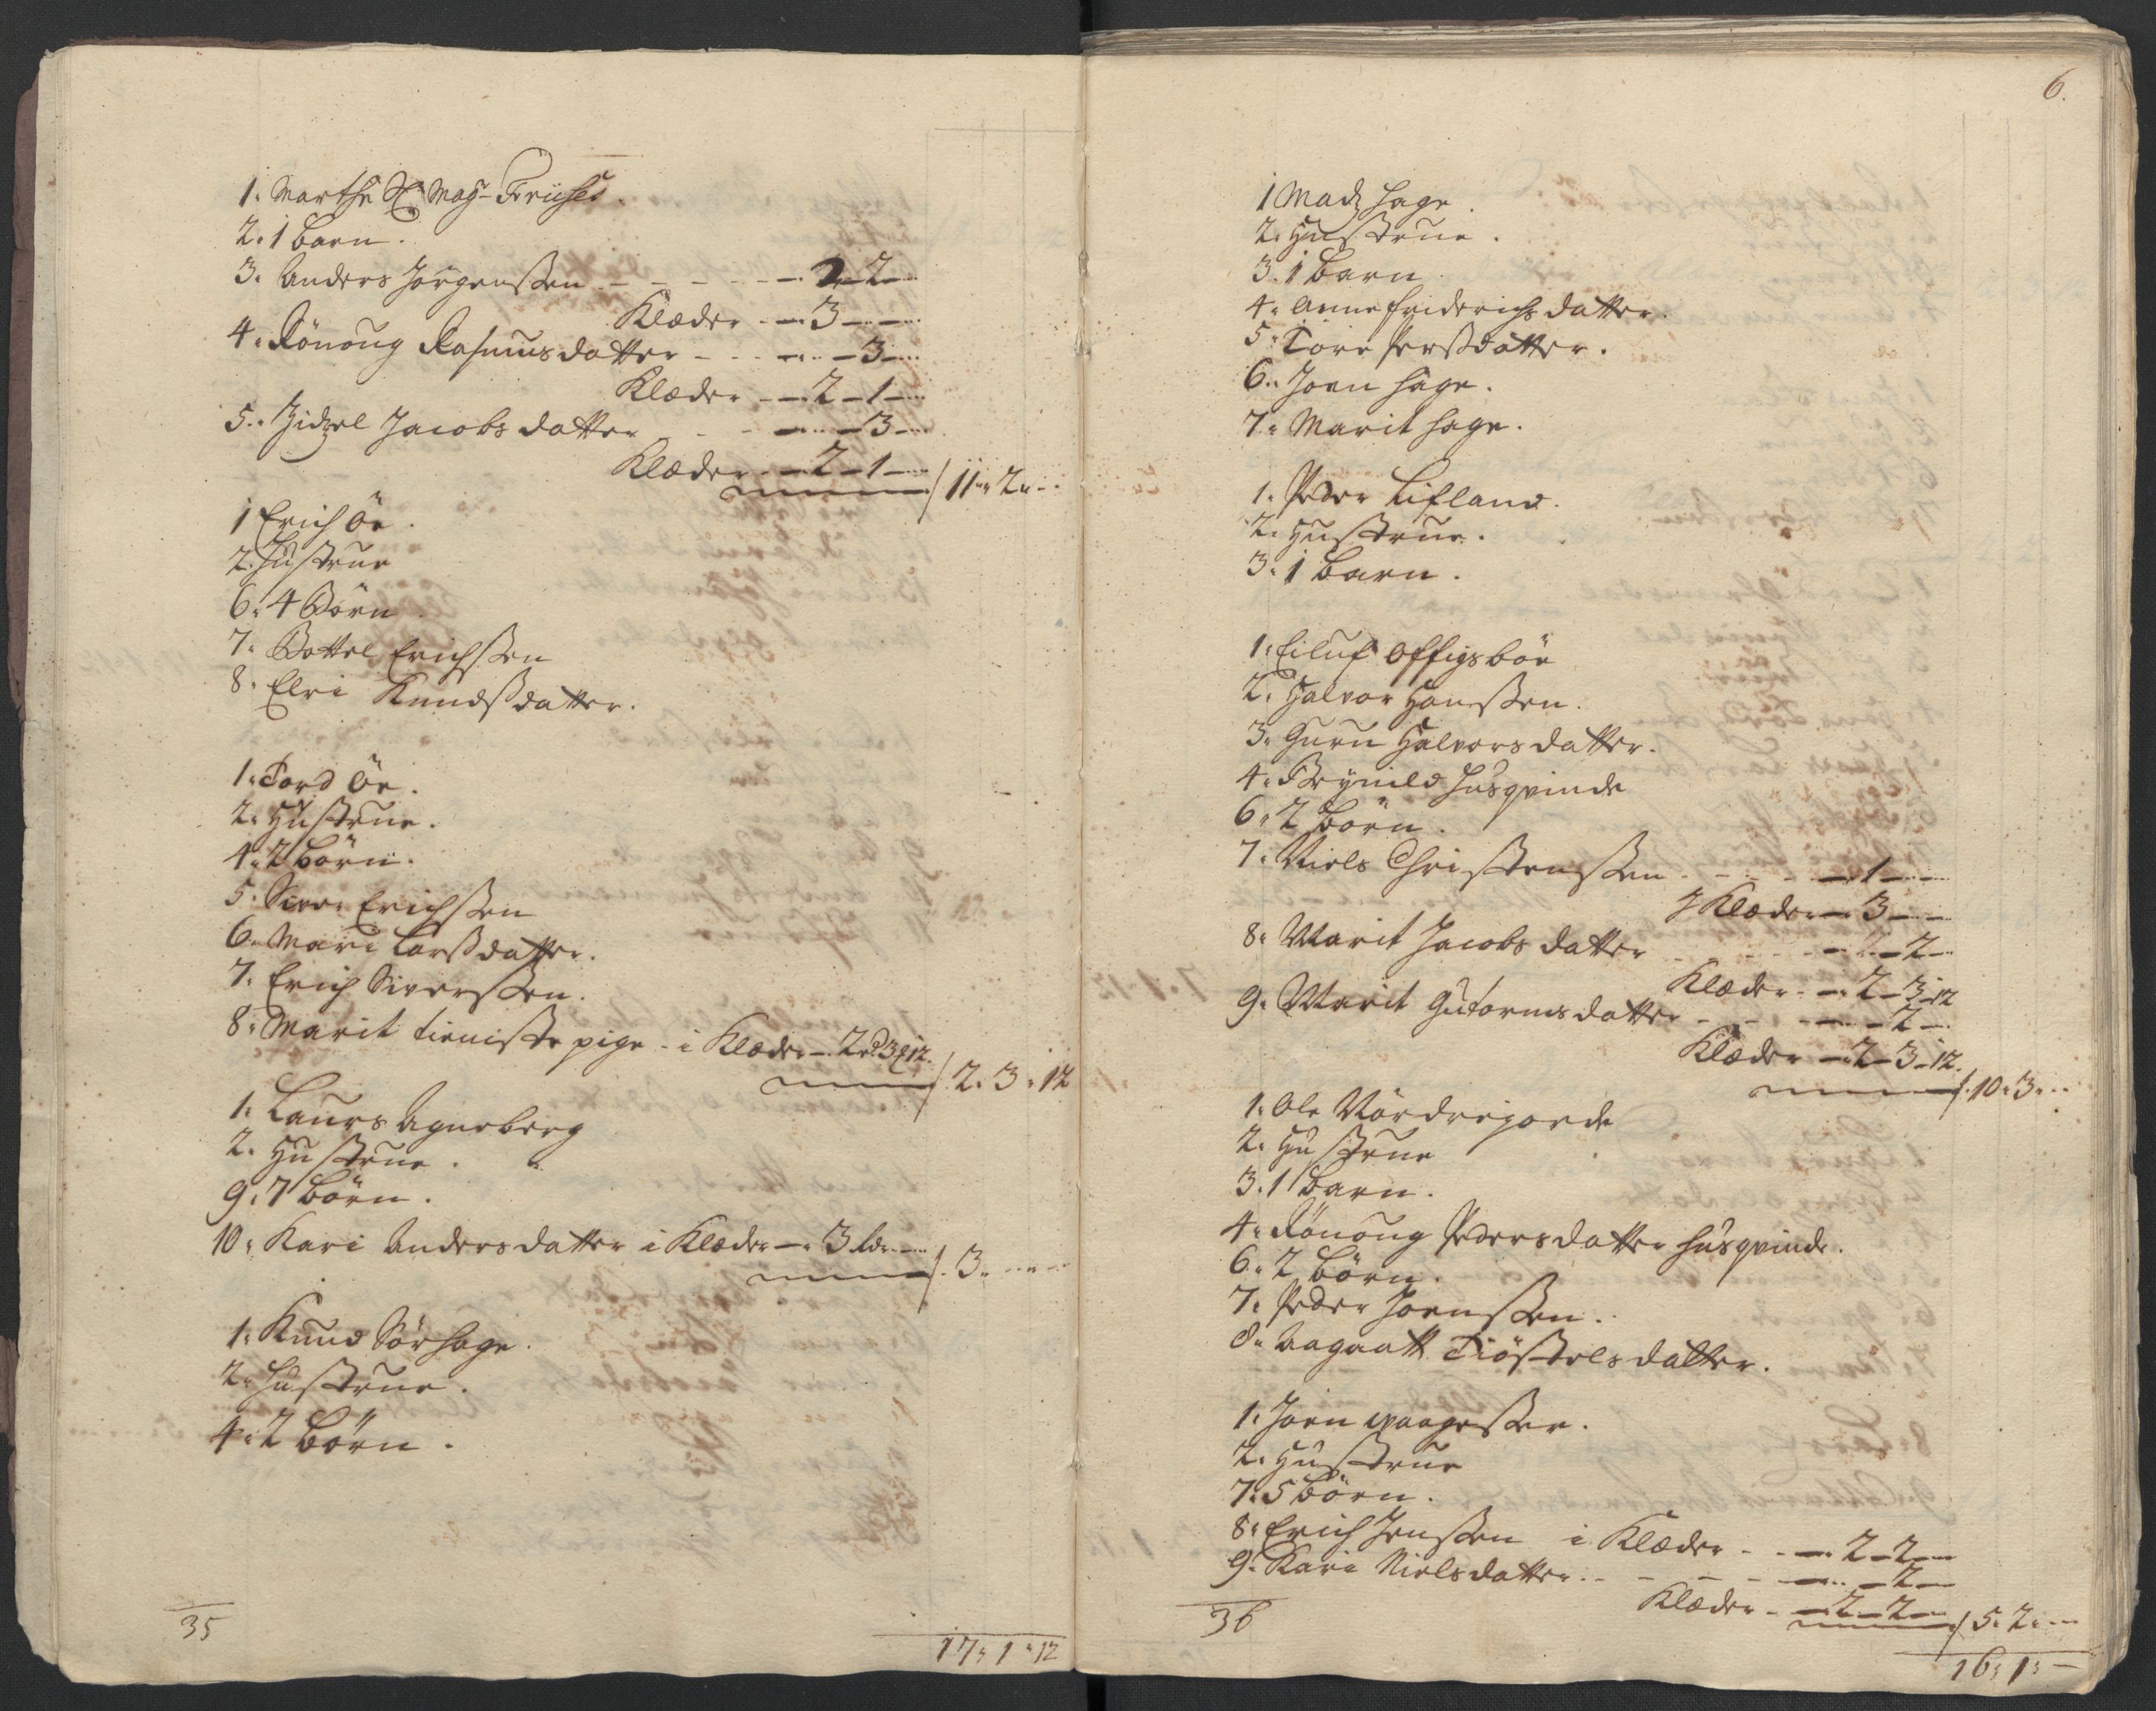 1. Marthe Sl. Mag. Friises.
2. 1 barn.
3. Anders Jørgenssen - - - - - 2 - 2 -
Klæder - - 3 - -
4. Rönoug Rasmusdatter - - - - 3 -
Klæder - - 2 - 1 -
5. Zidzel Jacobsdatter - - - 3 -
Klæder - - 2 - 1 - / 11 " 2 " -
1 Erich Öe.
2. Hustrue
6. 4 Börn
7. Bottel Erichssen
8. Elri Knudsdatter.
1. Tord Öe.
2. Hustrue.
4. 2 börn.
5. Siver Erichssen
6. Mari Larsdatter.
7. Erich Siverssen.
8. Marit tieniste pige - i Klæder - 2 rd. 3 12. / 2. 3. 12
1. Laurs Agneberg
2. Hustrue.
9. 7 börn.
10. Kari Andersdatter i Klæder - 3 rdr. / 3. - -
1. Knud Sörhage.
2. Hustrue.
4. 2 börn.
35
17. 1. 12
6.
1 Madz Hage.
2. Hustrue.
3. 1 barn.
4. Anne Friderichsdatter.
5. Tore Persdatter.
6. Joen Hage.
7. Marit Hage.
1. Peder Lifland.
2. Hustrue.
3. 1 barn.
1. Eiluf Offigsböe
2. Halvor Hanssen.
3. Guru Halvorsdatter.
4. Brynild Husqvinde
6. 2 börn.
7. Niels Christenssen - - - - 1 - -
J Klæder - 3 - -
8. Marit Jacobsdatter - - - - 2 -
Klæder - - 2 - 3 - 12
9. Marit Gutormsdatter - - - 2 -
Klæder - 2 - 3 - 12.
/. 10. 3. -
1. Ole Nördregjorde
2. Hustrue
3. 1 barn.
4. Rönoug Pedersdatter husqvinde.
6. 2 börn.
7. Peder Joenssen.
8. Aagaatt Tiöstelsdatter.
1. Joen
2. Hustrue
7. 5 börn.
8. Erich Jenssen i Klæder - - 2 - 2 -
9. Kari Nielsdatter. - - - - 2 -
Klæder - - 2 - 2 - / 5. 2. -
36
16. 1. -